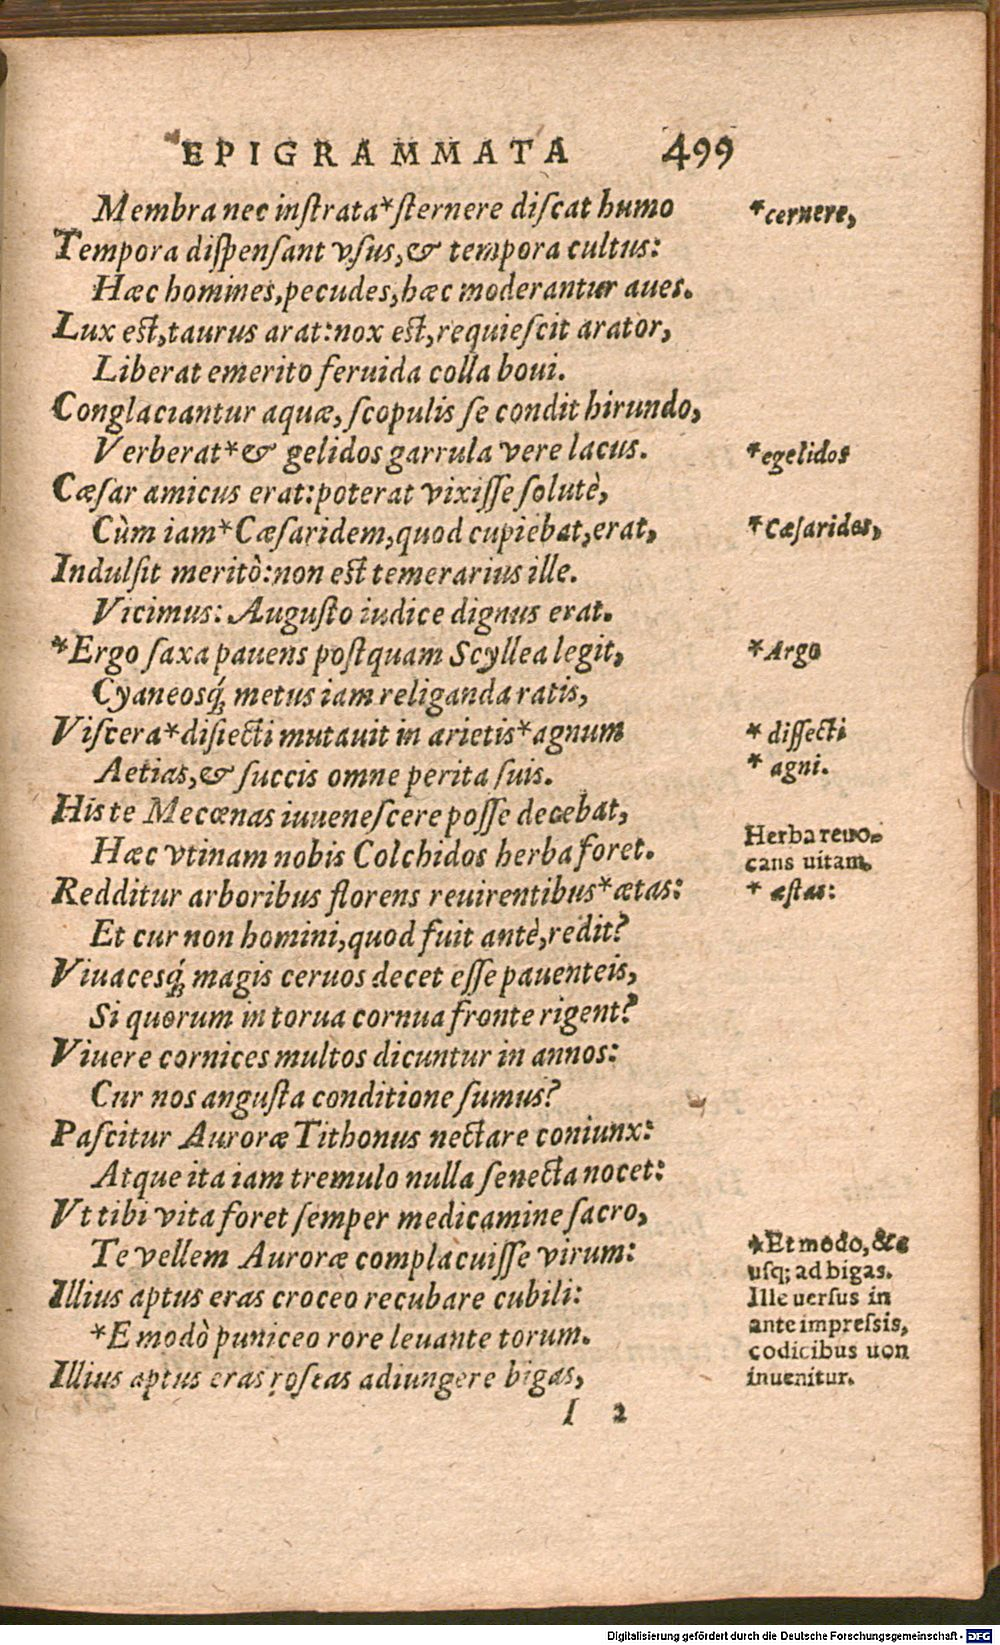 EPIGRAMMATA 499
Membra nec inſtrata*ſternere diſcat humo *cernere,
Tempora diſpenſant vſus,& tempora cultus:
Hæc homines,pecudes,hæc moderantur aues.
Lux eſt,taurus arat:nox eſt,requieſcit arator,
Liberat emerito feruida colla boui.
Conglaciantur aquæ, ſcopulis ſe condit hirundo,
Verberat*& gelidos garrula vere lacus. *egelidos
Cæſar amicus erat:poterat vixiſſe ſolutè,
Cùm iam*Cæſaridem,quod cupiebat,erat, *Cæſarides,
Indulſit meritò:non eſt temerarius ille.
Vicimus: Auguſto iudice dignus erat.
*Ergo ſaxa pauens poſtquam Scyllea legit, *Argo
Cyaneosq́; metus iam religanda ratis,
Viſcera*diſiecti mutauit in arietis*agnum * diſſecti
Aetias,& ſuccis omne perita ſuis. * agni.
His te Mecœnas iuueneſcere poſſe decebat,
Hæc vtinam nobis Colchidos herba foret. Herba reuo-
cans uitam.
Redditur arboribus florens reuirentibus*ætas: * æſtas:
Et cur non homini,quod fuit antè,redit?
Viuacesq́; magis ceruos decet eſſe pauenteis,
Si quorum in torua cornua fronte rigent?
Viuere cornices multos dicuntur in annos:
Cur nos anguſta conditione ſumus?
Paſcitur Auroræ Tithonus nectare coniunx:
Atque ita iam tremulo nulla ſenecta nocet:
Vt tibi vita foret ſemper medicamine ſacro,
Te vellem Auroræ complacuiſſe virum:
Illius aptus eras croceo recubare cubili:
*E modò puniceo rore leuante torum.
Illius aptus eras roſeas adiungere bigas,
*Et modo, &c
uſq; ad bigas.
Ille uerſus in
ante impreſsis,
codicibus uon
inuenitur.
I 2
Digitalisierung gefördert durch die Deutsche Forschungsgemeinschaft - DFG